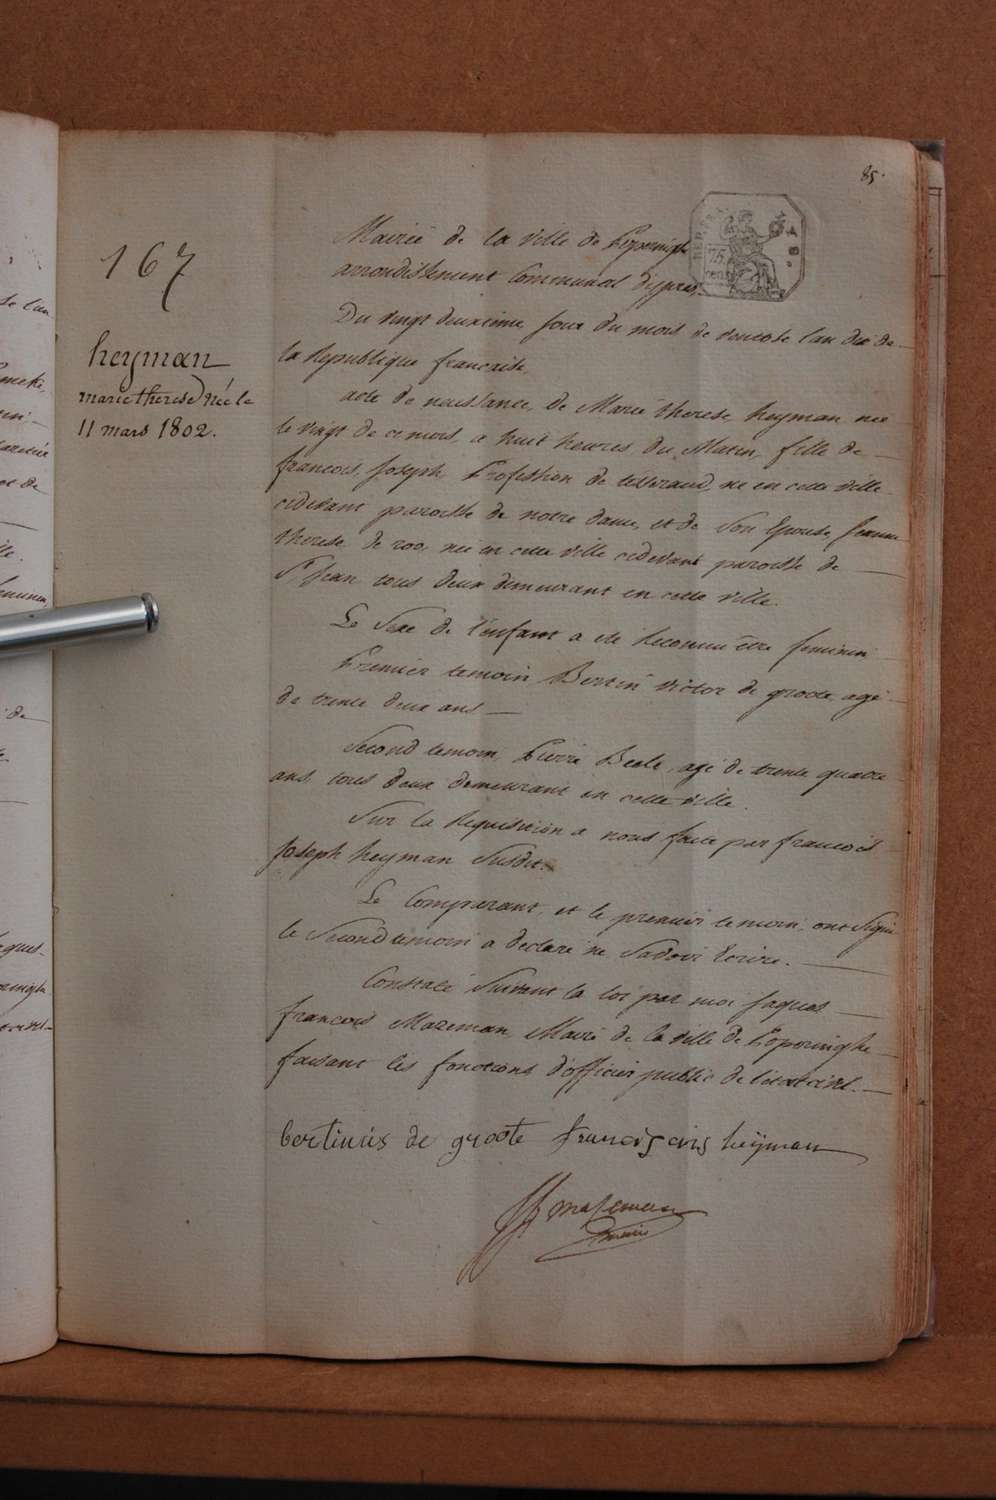 85.
167
heyman
marie therese Née le
11 mars 1802.
REP. FRA.
75.
cent
Mairie de la Ville de Poperingh
arrondissement Communal d'ypres.
Du vingt deuxieme jour du mois de ventose l'an dix de
la Republique francaise.
acte de naissance, de Marie therese heyman née
le vingt de ce mois, a huit heures du Matin, fille de
francois Joseph, Profession de tisserand, né en cette ville
cidevant paroisse de notre dame, et de Son Epouse Jeanne
therese de roo, née en cette ville cidevant paroisse de
St Jean tous deux demeurant en cette ville.
Le Sexe de l'enfant a eté Reconnu être feminin
Premier temoin Bertin Victor de groote agé
de trente deux ans
Second temoin, Pierre Beele, agé de trente quatre
ans, tous deux demeurant en cette ville.
Sur la Requisition a nous faite par francois
Joseph heyman Susdit.
Le Comparant, et le premier temoin, ont Signé
le Second temoin a declaré ne Savoir Ecrire.
Constaté Suivant la loi par moi Jaques
francois Mazeman, Maire de la ville de Poperinghe
faisant les fonctions d'officier public de l'etat civil.
bertinus de groote franciscus heÿman
mazeman
maire